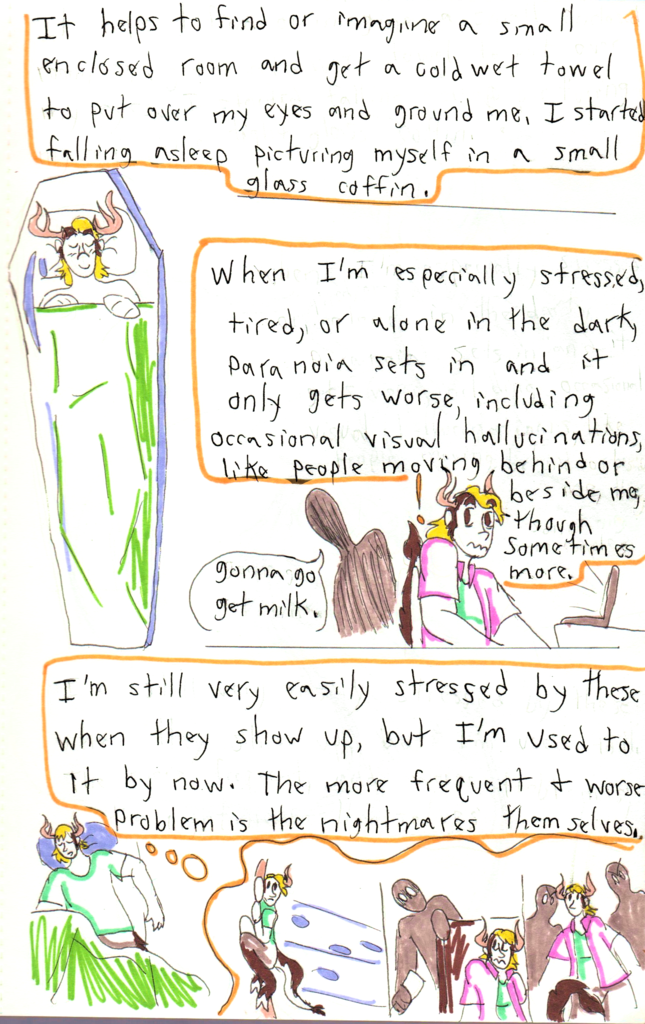 It helps to find or imagine a small
enclosed room and get a cold wet towel
to put over my eyes and ground me. I started
falling asleep picturing myself in a small
glass coffin.
When I'm especially stressed,
tired, or alone in the dark,
paranoia sets in and it
only gets worse, including
occasional visual hallucinations,
like people moving behind or
beside me,
though
sometimes
more.
!
gonna go
get milk.
I'm still very easily stressed by these
when they show up, but I'm used to
it by now. The more frequent + worse
problem is the nightmares themselves.